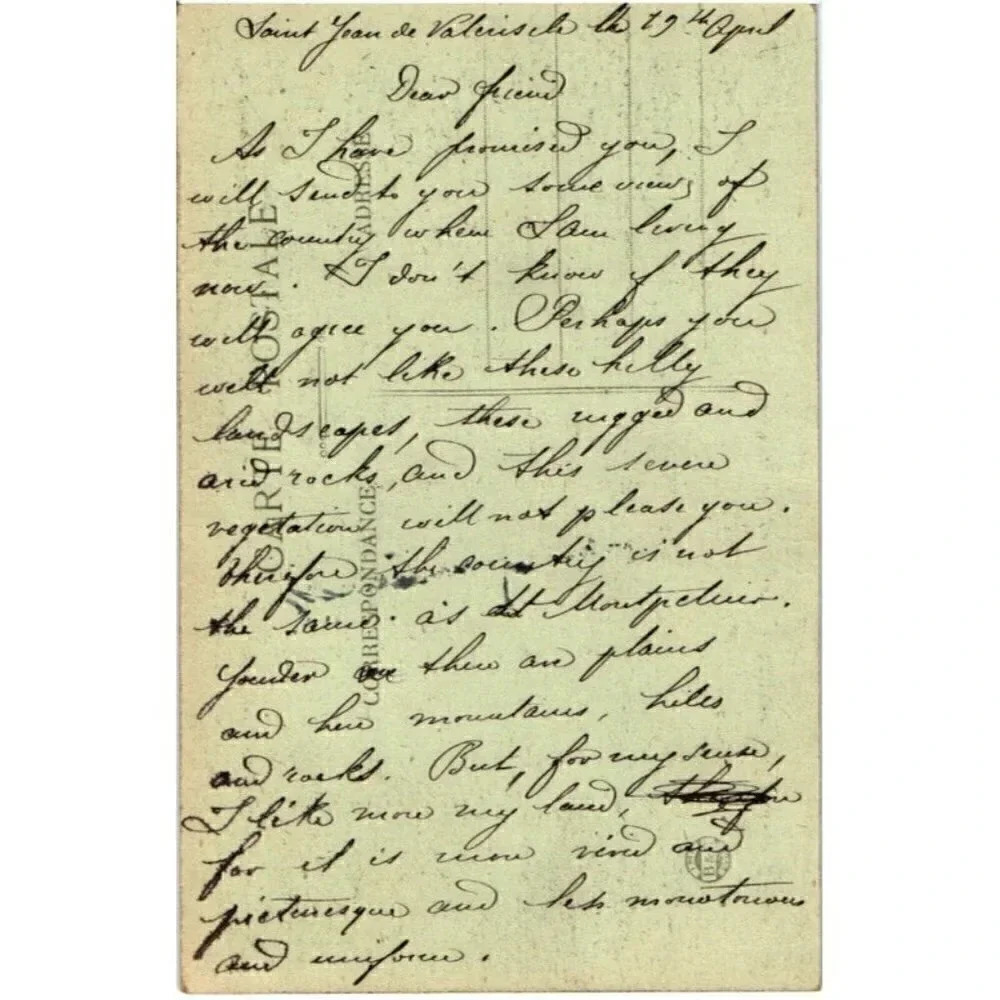 Saint Jean de Valeriscle the 19th April
Dear friend
As I have promised you, I
will send to you some views of
the country where I am living
now. I don't know if they
will agree you. Perhaps you
will not like these hilly
landscapes, these rugged and
arid rocks, and this severe
vegetation will not please you.
therefore the country is not
the same as at Montpellier.
Yonder there are plains
and here mountains, hills
and rocks. But, for my sense,
I like more my land,
for it is more vivid and
picturesque and less monotonous
and uniform.
CARTE POSTALE
ADRESSE
CORRESPONDANCE